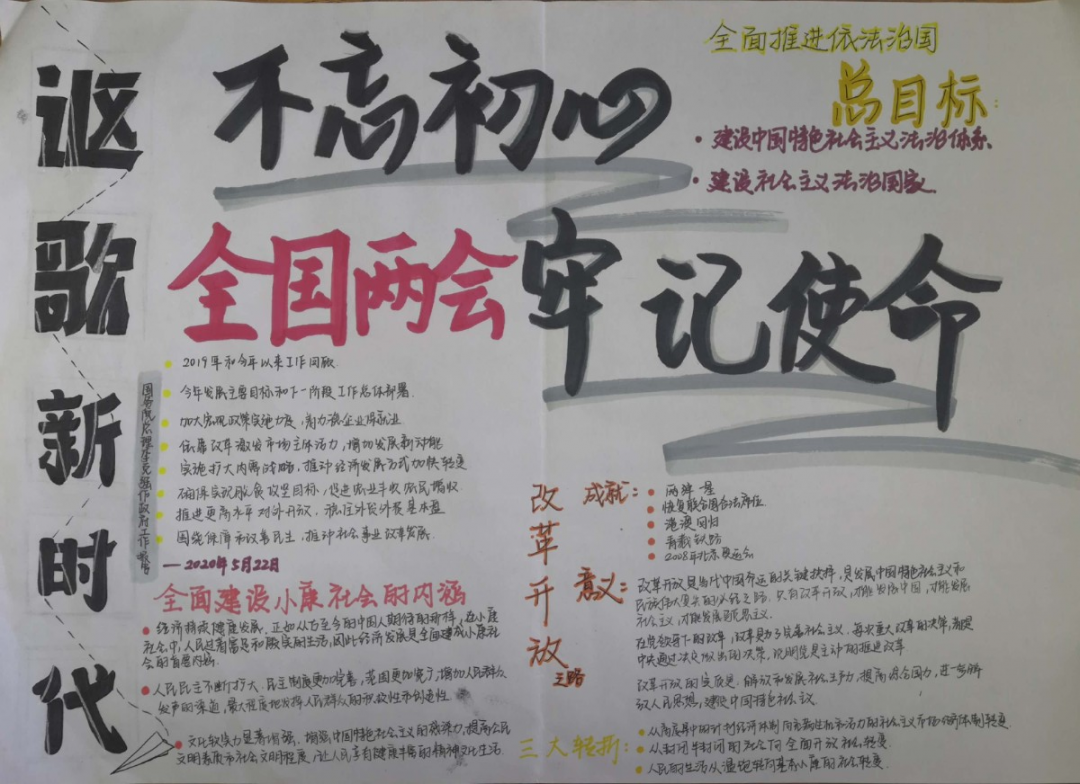 讴歌新时代
不忘初心
全面推进依法治国
总目标:
• 建设中国特色社会主义法治体系
• 建设社会主义法治国家
全国两会
牢记使命
国务院总理李克强作政府工作报告
2019年和今年以来工作回顾
今年发展主要目标和下一阶段工作总体部署
加大宏观政策实施力度,着力稳企业保就业
依靠改革激发市场主体活力,增加发展新动能
实施扩大内需战略,推动经济发展方式加快转变
确保实现脱贫攻坚目标,促进农业丰收农民增收
推进更高水平对外开放,稳住外贸外资基本盘
围绕保障和改善民生,推动社会事业改革发展
—2020年5月22日
全面建设小康社会的内涵
经济持续健康发展,正如从古至今的中国人期待的那样,在小康
社会中,人民过着富足和殷实的生活,因此经济发展是全面建成小康社
会的首要内涵
人民民主不断扩大,民主制度更加完善,范围更加宽广,增加人民群众
发声的渠道,最大程度地发挥人民群众的积极性和创造性
文化软实力显著增强,增强中国特色社会主义的感染力,提高公民
文明素质和社会文明程度,让人民享有健康丰富的精神文化生活
改革开放之路
成就:
两弹一星
恢复联合国合法席位
港澳回归
青藏铁路
2008年北京奥运会
意义:
改革开放是当代中国命运的关键抉择,是发展中国特色社会主义和
民族伟大复兴的必经之路,只有改革开放,才能发展中国,才能发展
社会主义,才能发展马克思主义
在党领导下的改革,改革是为了完善社会主义,每次重大改革的决策,都是
中央通过决定做出的决策,说明党是主动的推进改革
改革开放的实质是:解放和发展社会生产力,提高综合国力,进一步解
放人民思想,建设中国特色社会主义
三大转折:
从高度集中的计划经济体制向充满生机和活力的社会主义市场经济体制转变
从封闭半封闭的社会向全面开放社会转变
人民的生活从温饱转向基本小康的社会转变